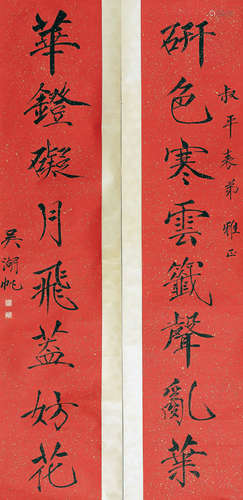 叔平表弟雅正
研色寒雲籤聲亂葉
華鐙礙月飛蓋妨花
吳湖帆